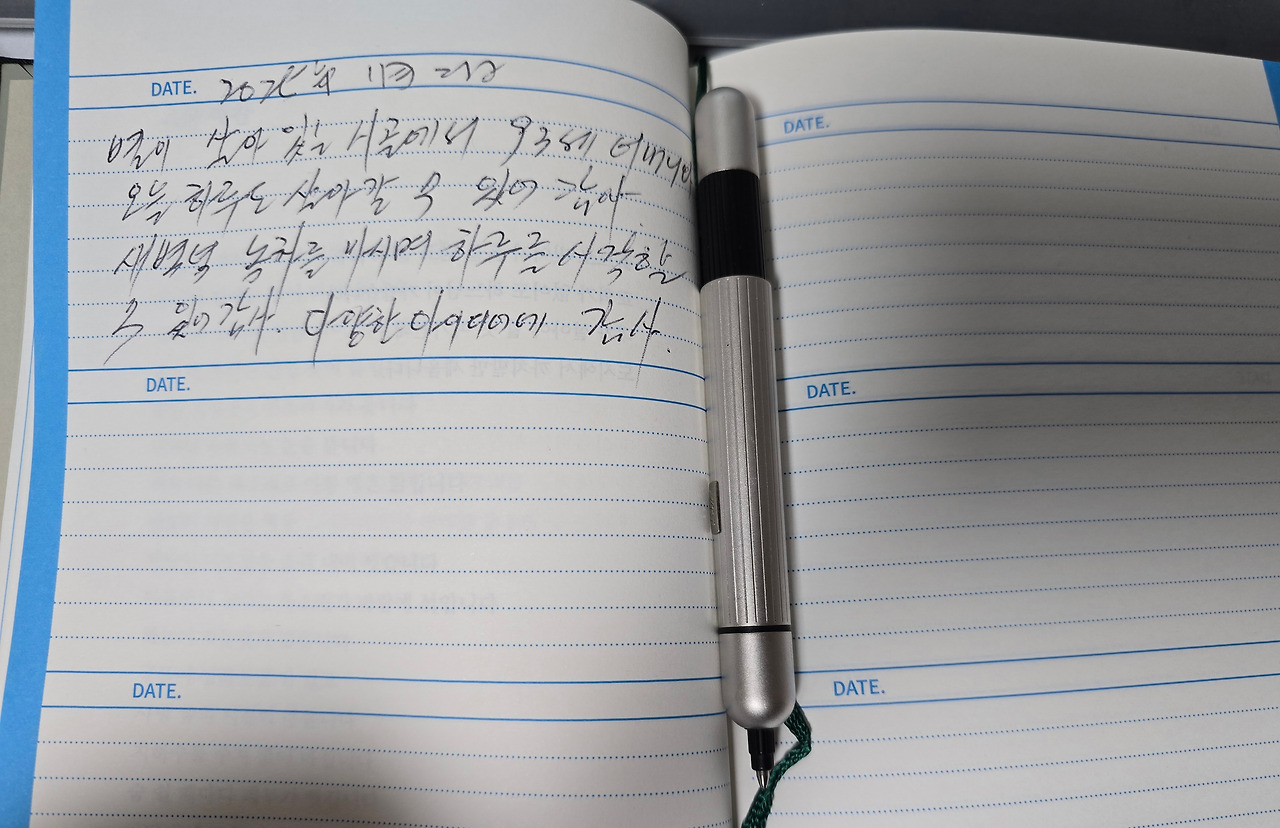 DATE. 2025년 11월 21일
별이 살아 있는 시골에서 93세 어머니와
오늘 하루도 살아갈 수 있어 감사
새벽녘 녹차를 마시며 하루를 시작할
수 있어 감사. 다양한 아이디어에 감사.
DATE.
DATE.
DATE.
DATE.
DATE.